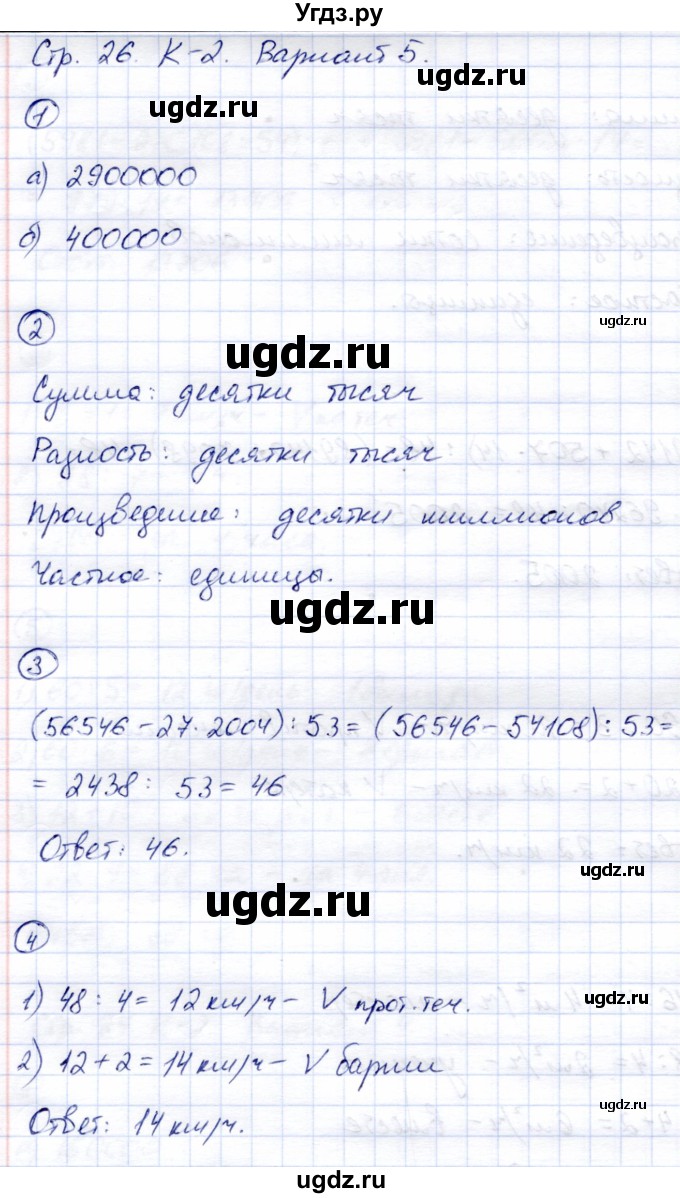 Угдз.ру
Стр. 26. К-2. Вариант 5.
ugdz.ru
ugdz.ru
1
а) 2900000
б) 400000
2
ugdz.ru
ugdz.ru
Сумма: десятки тысяч
Разность: десятки тысяч
Произведение: десятки миллионов
Частное: единицы.
ugdz.ru
3
(56546-27·2004):53=(56546-54108):53=
= 2438: 53=46
Ответ: 46.
ugdz.ru
ugdz.ru
4
1) 48:4= 12км/ч- V прот.теч.
ugdz.ru
2) 12+2=14км/ч- V баржи
Ответ: 14км/ч.
ugdz.ru
ugdz.ru